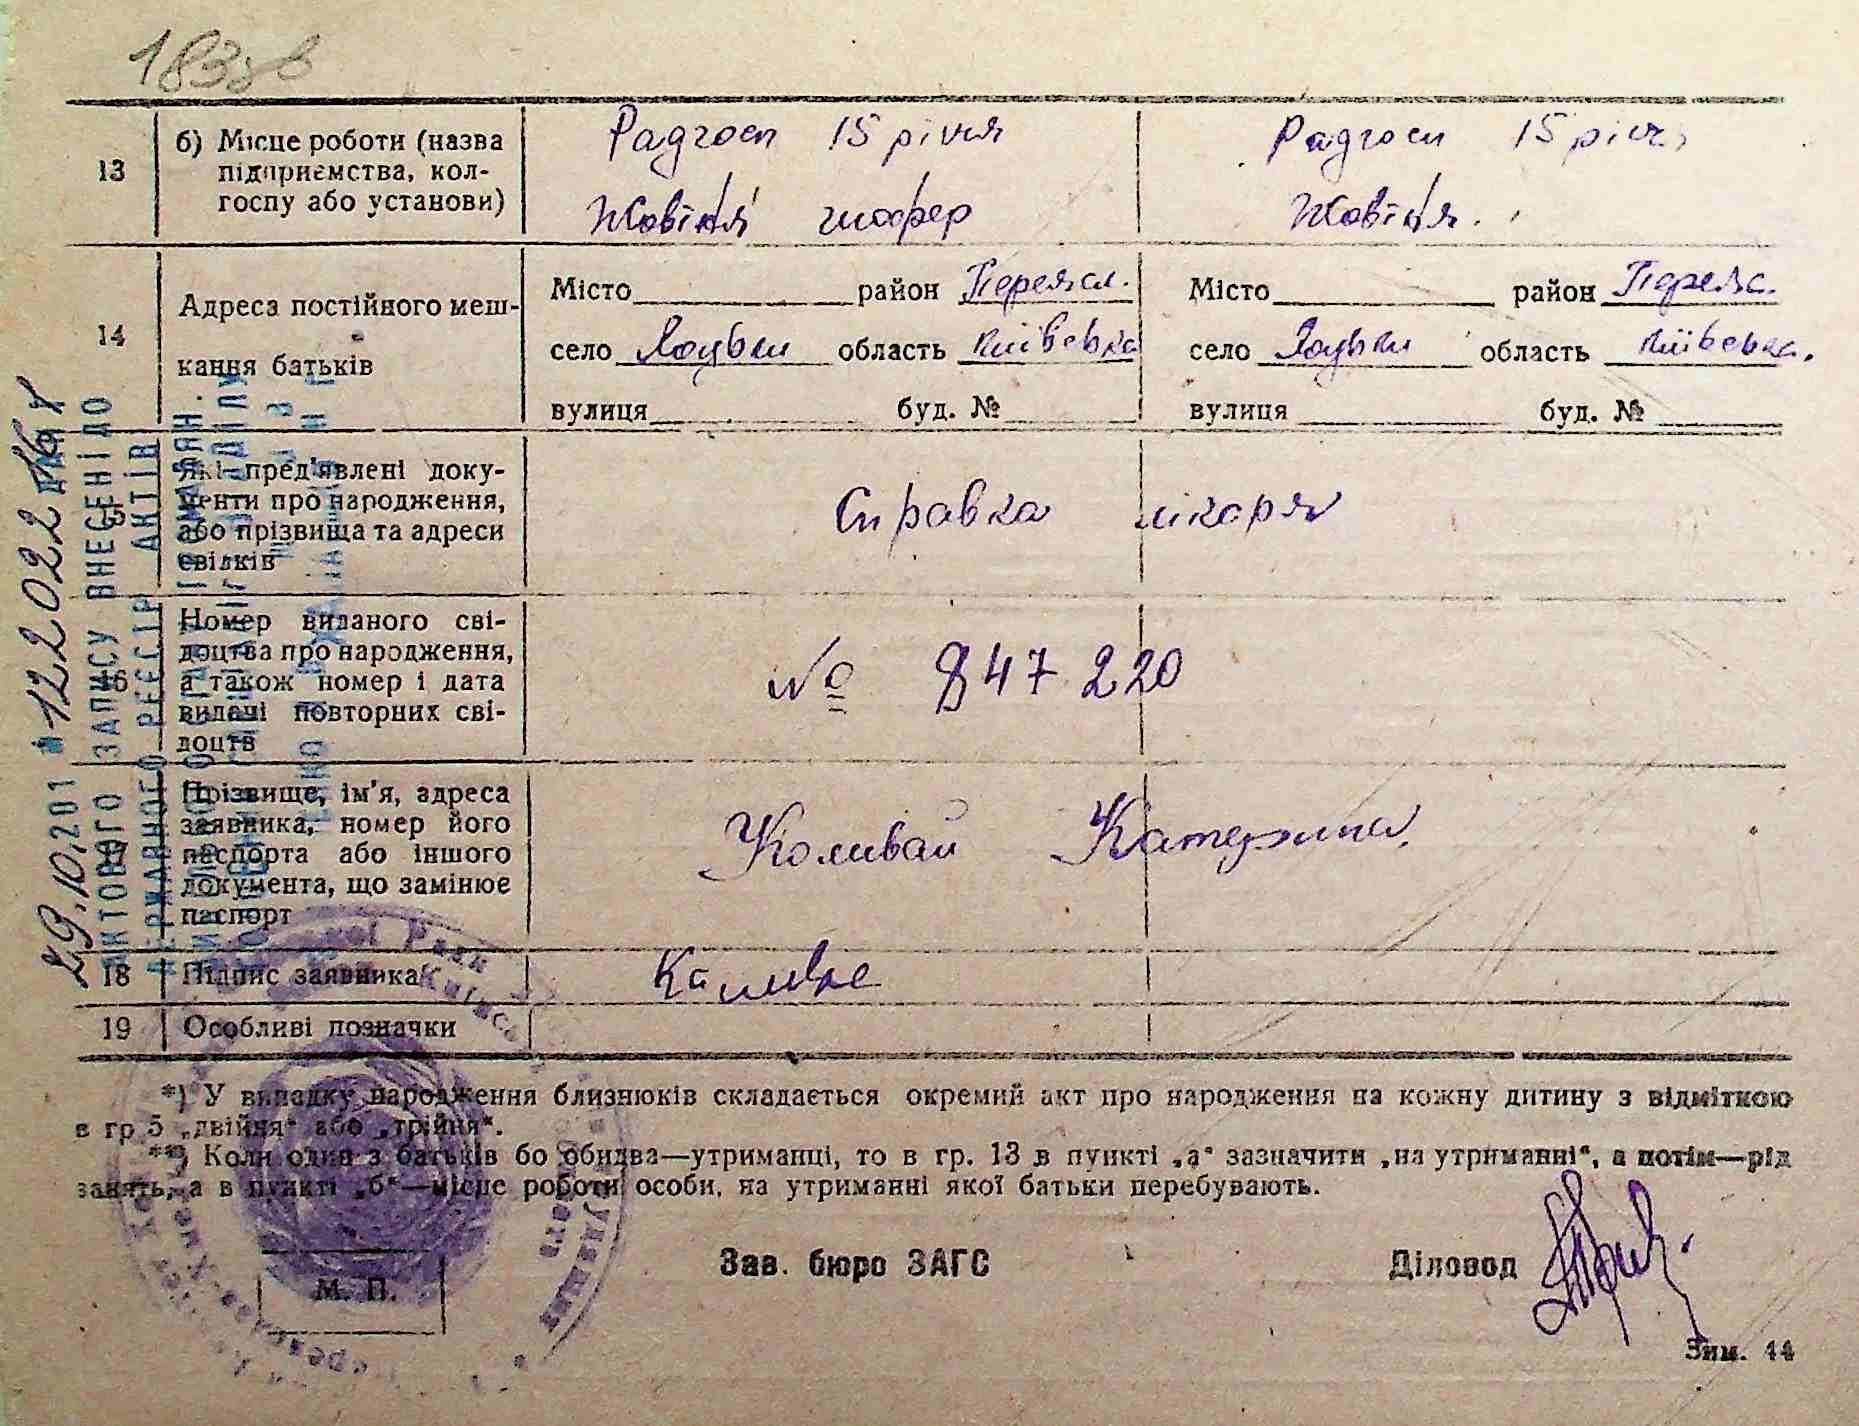 183зв
13
б) Місце роботи (назва
підприємства, кол-
госпу або установи)
Радгосп 15 річчя
Жовтня шофер
Радгосп 15 річч,
Жовтня.
14
Адреса постійного меш-
кання батьків
Місто район Переясл.
село Яцьки область Київська
вулиця буд. №
Місто район Переяс.
село Яцьки область Київська.
вулиця буд. №
15
Які пред'явлені доку-
менти про народження,
або прізвища та адреси
свідків
Справка лікаря
16
Номер виданого сві-
доцтва про народження,
а також номер і дата
видачі повторних сві-
доцтв
№ 847220
17
Прізвище, ім'я, адреса
заявника, номер його
паспорта або іншого
документа, що замінює
паспорт
Коливай Катерина.
18
Підпис заявника
19
Особливі позначки
*) У випадку народження близнюків складається окремий акт про народження на кожну дитину з відміткою
в гр 5 „двійня" або „трійня".
**) Коли один з батьків бо обидва—утриманці, то в гр. 13 в пункті „а" зазначити „на утриманні", а потім—рід
занять, а в пункті „б"—місце роботи особи, на утриманні якої батьки перебувають.
Зав. бюро ЗАГС
Діловод
М. П.
Зим. 44
29.10.201
12202216
АКТОВОГО ЗАПИСУ ВНЕСЕНІ ДО
ДЕРЖАВНОГО РЕЄСТР АКТІВ